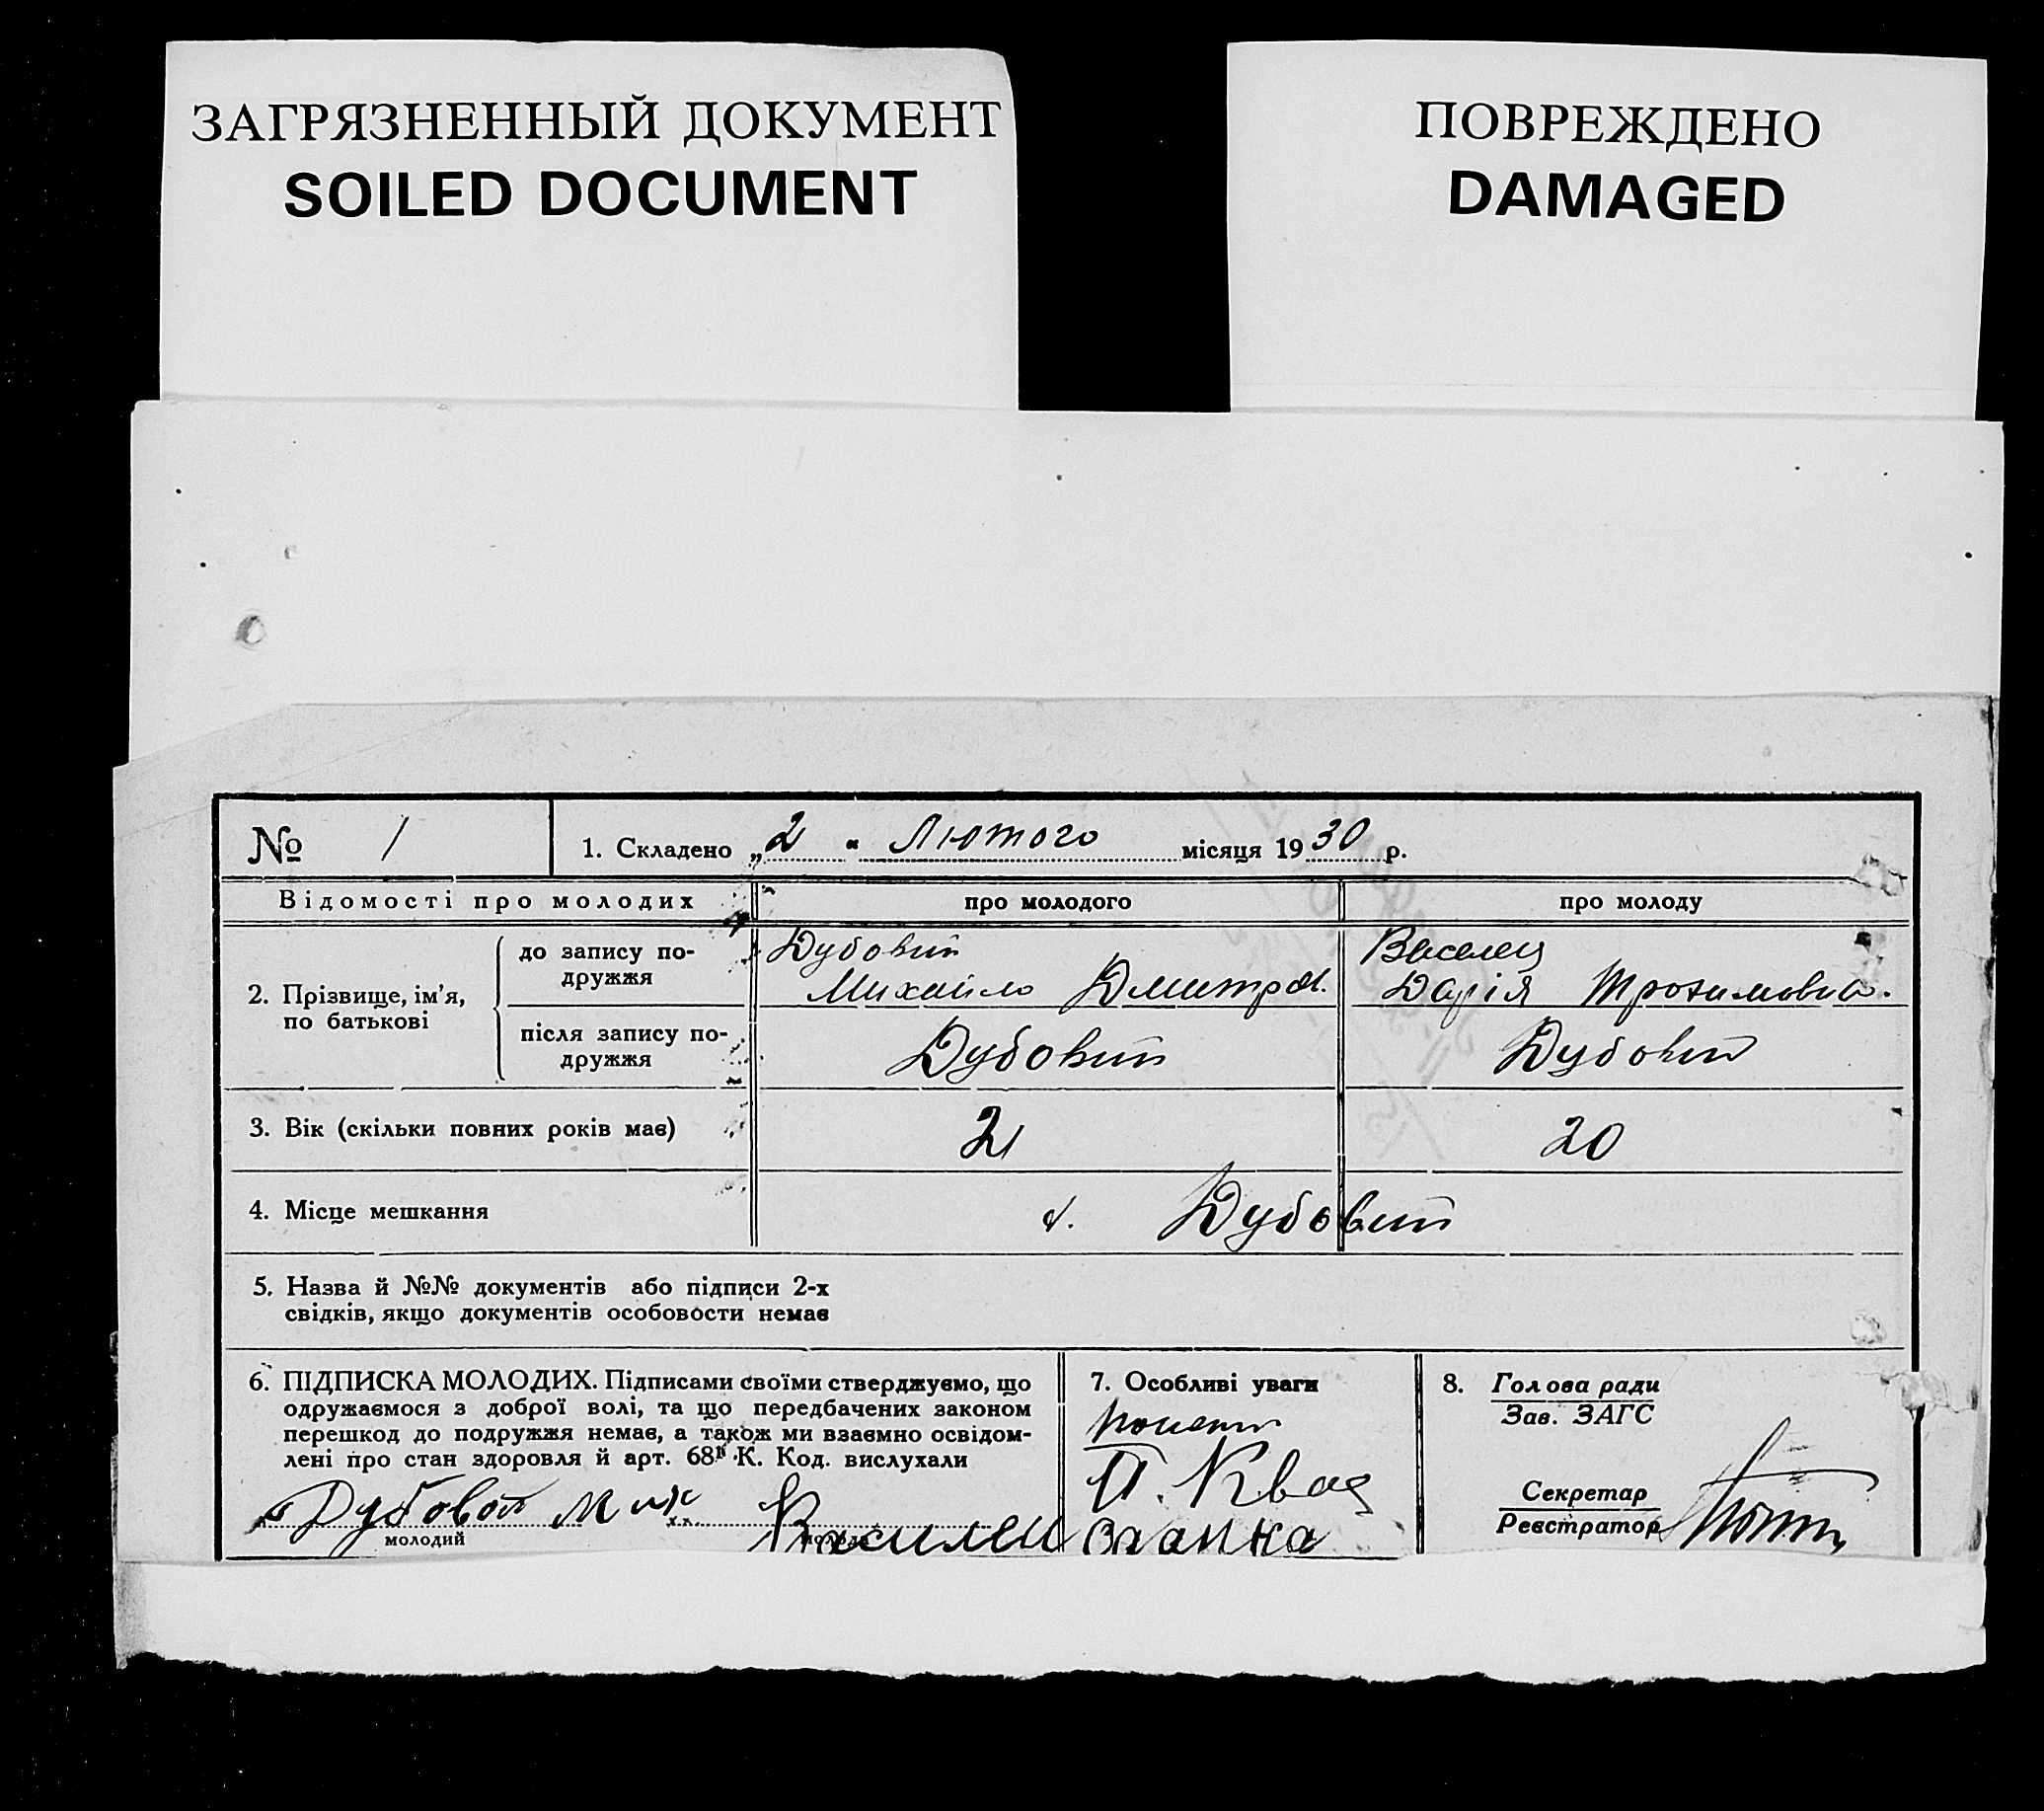 ЗАГРЯЗНЕННЫЙ ДОКУМЕНТ
SOILED DOCUMENT
ПОВРЕЖДЕНО
DAMAGED
№ 1
1. Складено „2“ Лютого місяця 1930 р.
Відомості про молодих
про молодого
про молоду
2. Прізвище, ім'я,
по батькові
до запису по-
дружжя
Дубовий
Михайло Дмитров.
Дарія
після запису по-
дружжя
Дубовий
Дубовий
3. Вік (скільки повних років має)
21
20
4. Місце мешкання
Дубовий
5. Назва й №№ документів або підписи 2-х
свідків, якщо документів особовости немає
6. ПІДПИСКА МОЛОДИХ. Підписами своїми стверджуємо, що
одружаємося з доброї волі, та що передбачених законом
перешкод до подружжя немає, а також ми взаємно освідом-
лені про стан здоровля й арт. 68 К. Код. вислухали
Дубовой Мих
молодий
молода
7. Особливі уваги
8. Голова ради
Зав. ЗАГС
Секретар
Реєстратор